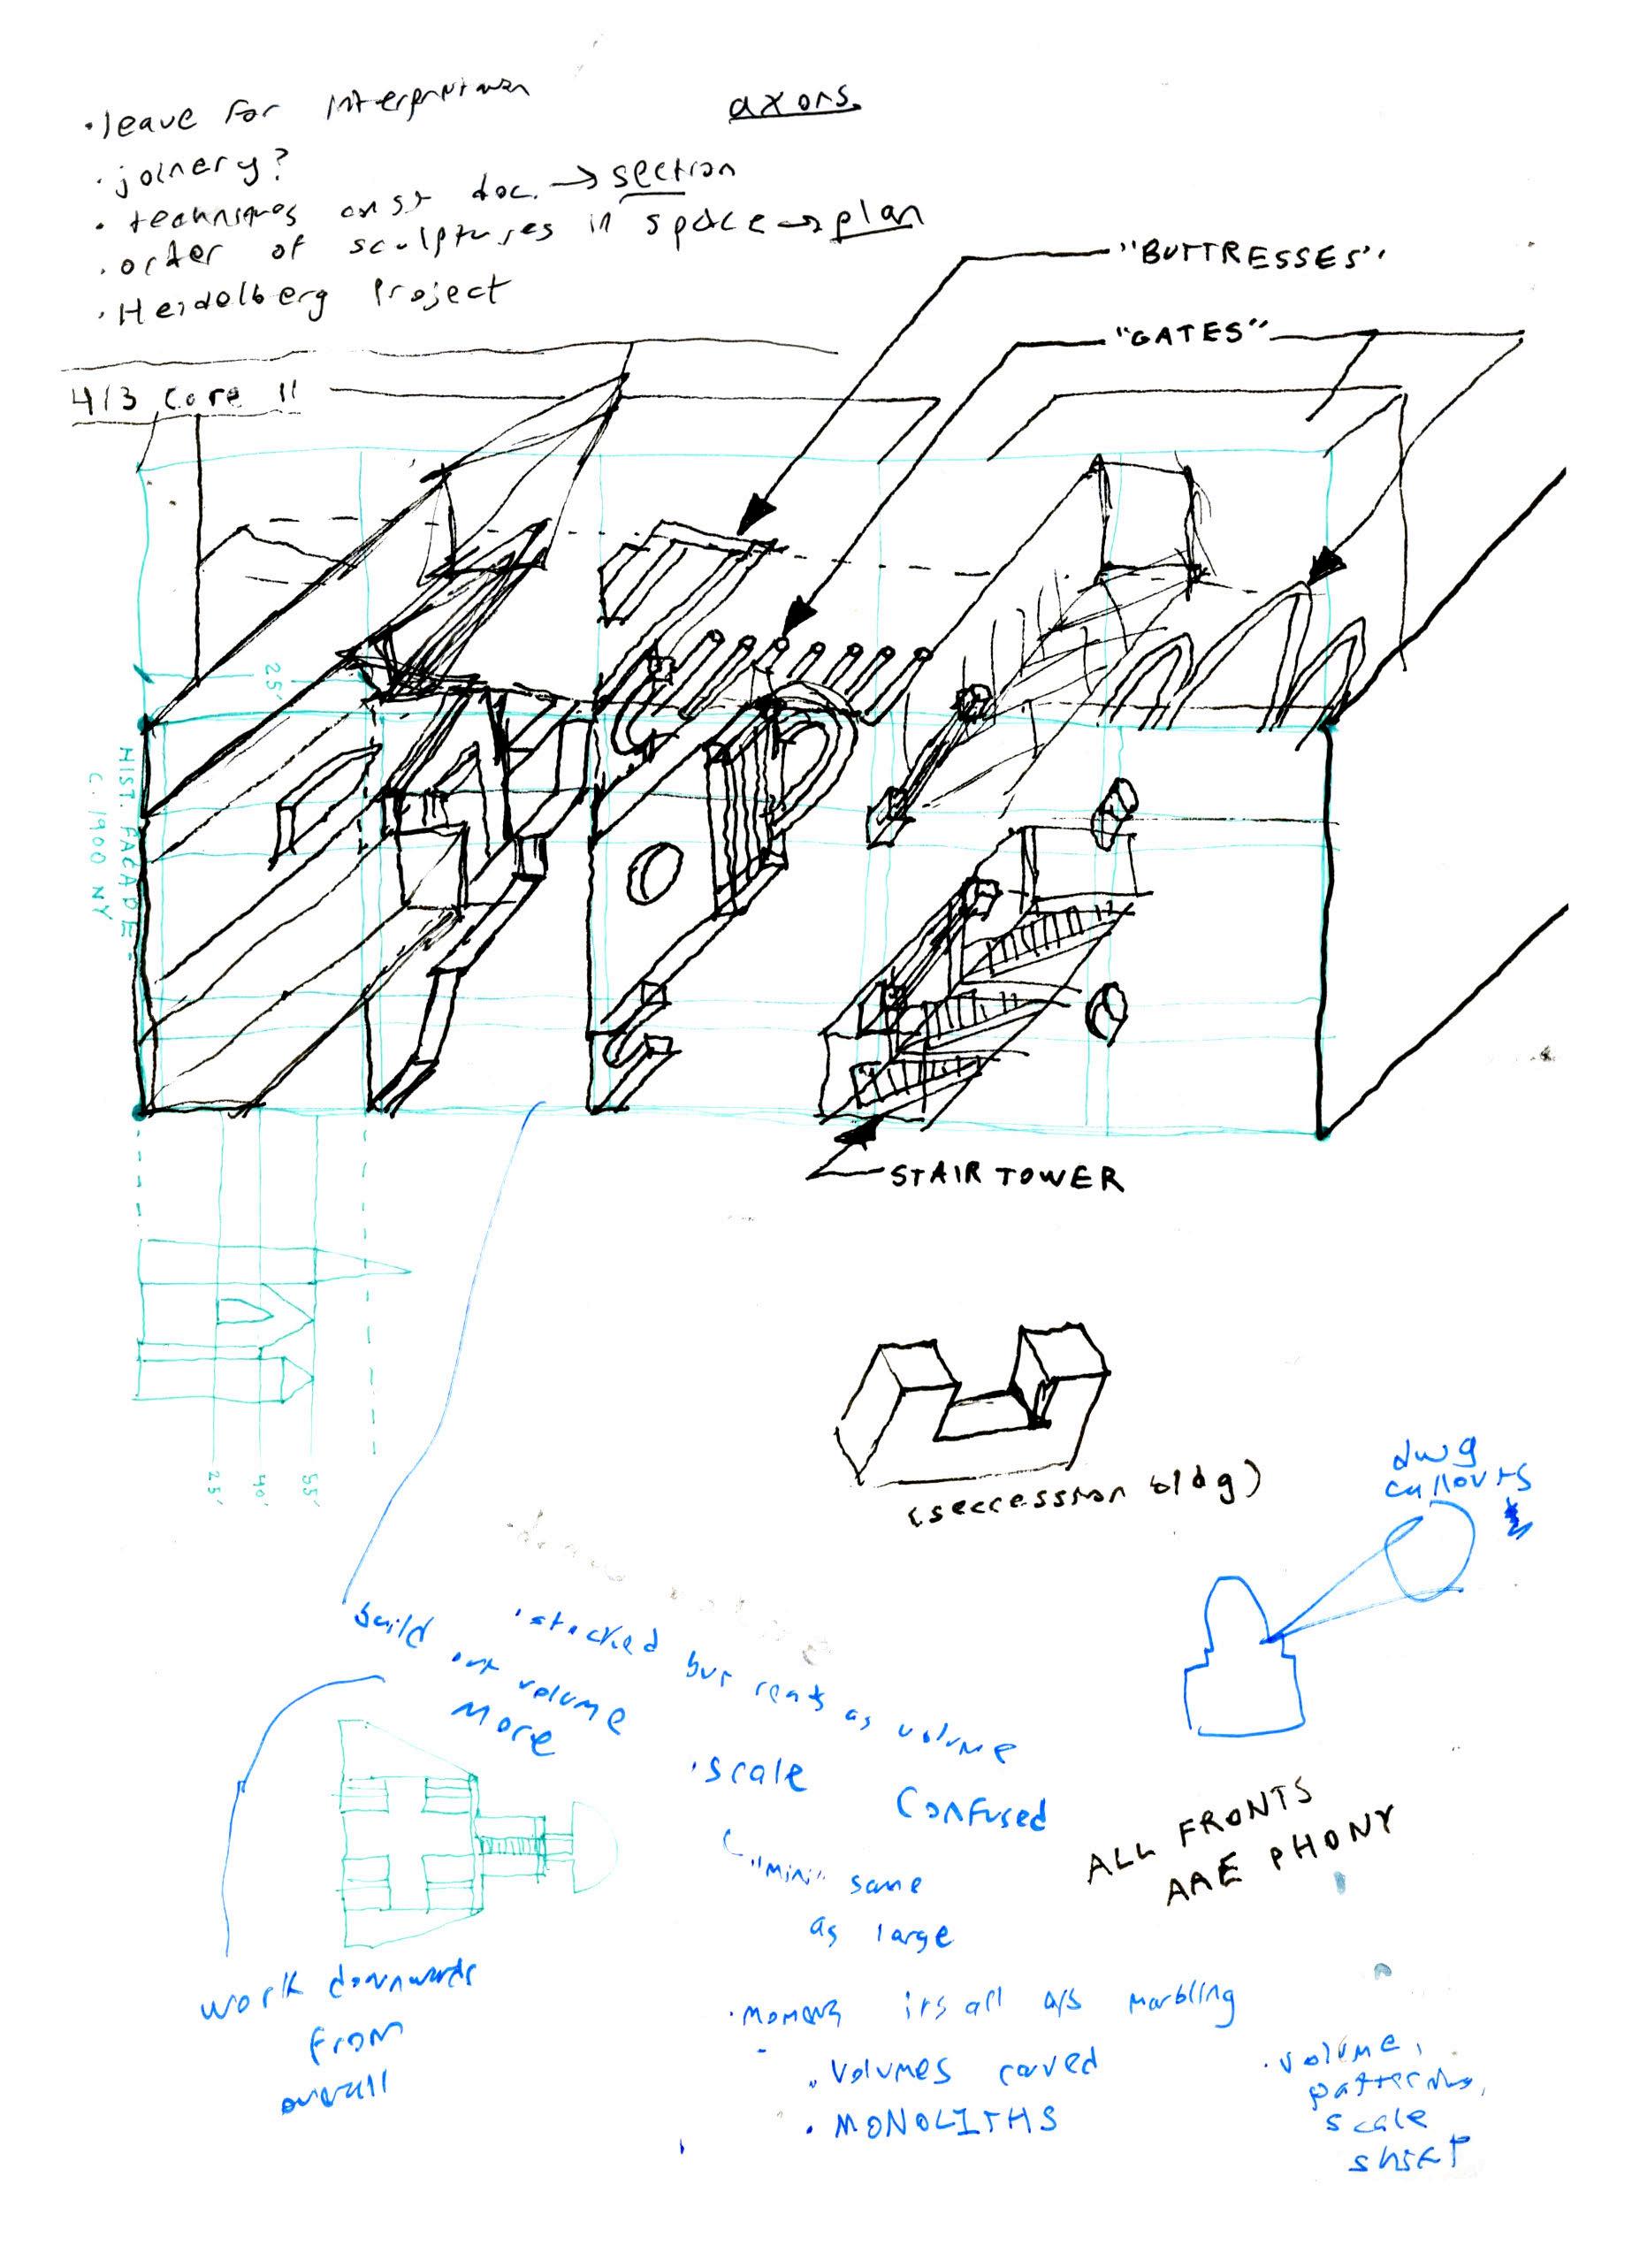 · leave for interpretation
axons
· joinery?
· techniques const doc. → section
· order of sculptures in space → plan
· Heidelberg Project
"BUTTRESSES"
"GATES"
4/3 Core II
25'
HIST. FACADE -
C. 1900 NY
STAIR TOWER
25'
40'
55'
(seccession bldg)
dwg
callouts
build out volume
more
· stacked but reads as volume
· scale confused
"mini" same
as large
ALL FRONTS
ARE PHONY
work downwards
from
overall
its all marbling
· volumes carved
· MONOLITHS
· volume,
patterning,
scale
shift